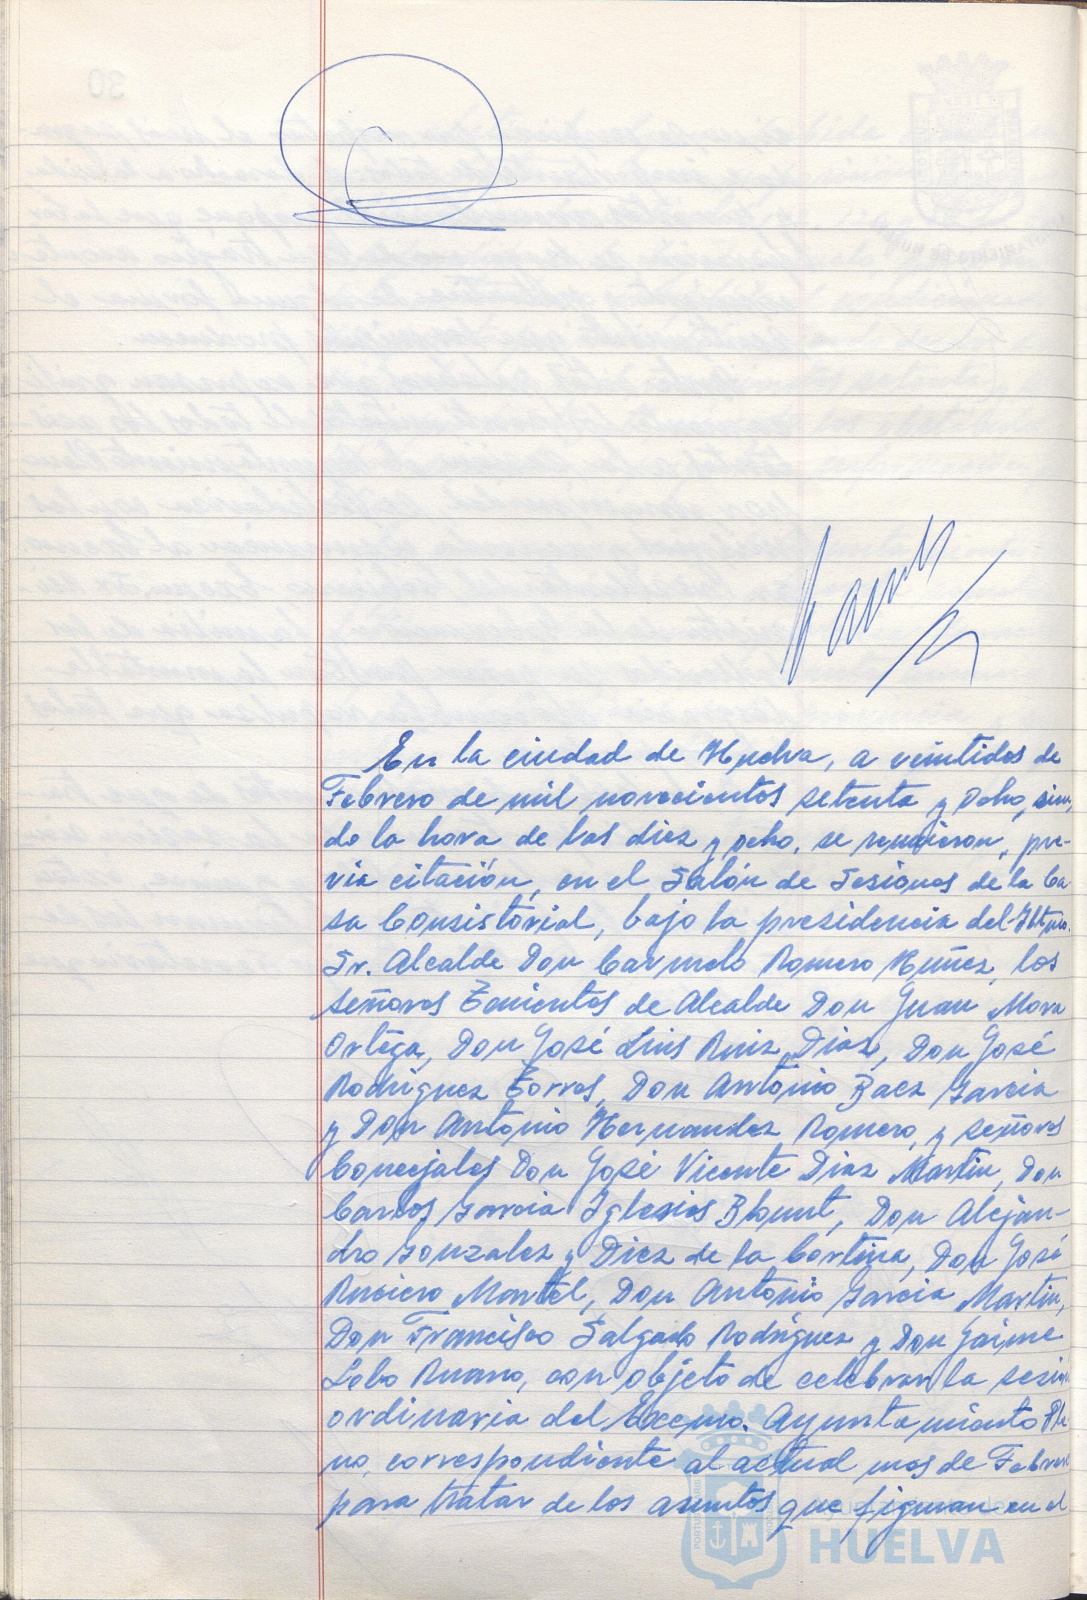 En la ciudad de Huelva, a veintidos de
Febrero de mil novecientos setenta y ocho, sien-
do la hora de las diez y ocho, se reunieron, pre-
via citación, en el Salón de Sesiones de la Ca-
sa Consistorial, bajo la presidencia del Iltmo.
Sr. Alcalde Don Carmelo Romero Nuñez, los
señores Tenientes de Alcalde Don Juan Mora
Ortega, Don José Luis Ruiz Diaz, Don José
Rodriguez Torres, Don Antonio Baez Garcia
y Don Antonio Hernandez Romero, y señores
Concejales Don José Vicente Diaz Martin, Don
Carlos Garcia Iglesias Blount, Don Alejan-
dro Gonzalez y Diez de la Cortina, Don José
Rociero Martel, Don Antonio Garcia Martin,
Don Francisco Salgado Rodriguez y Don Jaime
Lobo Ruano, con objeto de celebrar la sesión
ordinaria del Excmo. Ayuntamiento Ple-
no, correspondiente al actual mes de Febrero
para tratar de los asuntos que figuran en el
HUELVA